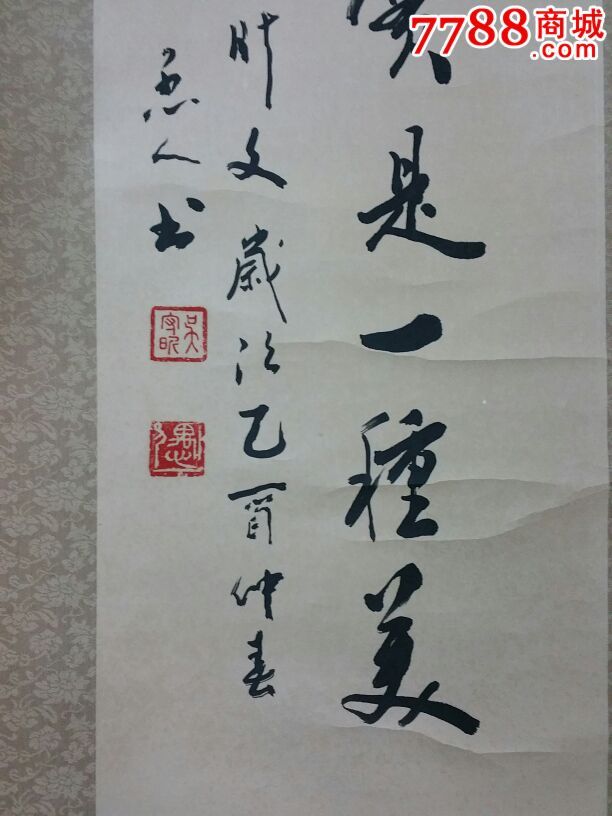 7788商城
.com
是一種美
文歲次乙酉仲春
愚人书